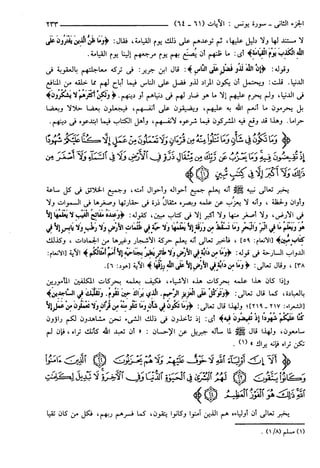 الجزء الثاني - سورة يونس : الآيات (٦١ - ٦٤) ٢٢٣
لا مستند لها ولا دليل عليها، ثم توعدهم على ذلك يوم القيامة، فقال: ﴿وَمَا ظَنُّ الَّذِينَ يَفْتَرُونَ عَلَى
اللَّهِ الْكَذِبَ يَوْمَ الْقِيَامَةِ﴾ أي: ما ظنهم أن يُصنع بهم يوم مرجعهم إلينا يوم القيامة.
وقوله: ﴿إِنَّ اللَّهَ لَذُو فَضْلٍ عَلَى النَّاسِ﴾: قال ابن جرير: في تركه معاجلتهم بالعقوبة في
الدنيا. قلت: ويحتمل أن يكون المراد لذو فضل على الناس فيما أباح لهم مما خلقه من المنافع
في الدنيا، ولم يحرم عليهم إلا ما هو ضار لهم في دنياهم أو دينهم. ﴿وَلَٰكِنَّ أَكْثَرَهُمْ لَا يَشْكُرُونَ﴾
بل يحرمون ما أنعم الله به عليهم، ويضيقون على أنفسهم، فيجعلون بعضا حلالا وبعضا
حراما. وهذا قد وقع فيه المشركون فيما شرعوه لأنفسهم، وأهل الكتاب فيما ابتدعوه في دينهم.
﴿وَمَا تَكُونُ فِي شَأْنٍ وَمَا تَتْلُو مِنْهُ مِن قُرْآنٍ وَلَا تَعْمَلُونَ مِنْ عَمَلٍ إِلَّا كُنَّا عَلَيْكُمْ شُهُودًا
إِذْ تُفِيضُونَ فِيهِ وَمَا يَعْزُبُ عَن رَّبِّكَ مِن مِّثْقَالِ ذَرَّةٍ فِي الْأَرْضِ وَلَا فِي السَّمَاءِ وَلَا أَصْغَرَ مِن
ذَٰلِكَ وَلَا أَكْبَرَ إِلَّا فِي كِتَابٍ مُّبِينٍ ﴾
يخبر تعالى نبيه ﷺ أنه يعلم جميع أحواله وأحوال أمته، وجميع الخلائق في كل ساعة
وأوان ولحظة، وأنه لا يعزب عن علمه وبصره مثقال ذرة في حقارتها وصغرها في السموات ولا
في الأرض، ولا أصغر منها ولا أكبر إلا في كتاب مبين، كقوله: ﴿وَعِندَهُ مَفَاتِحُ الْغَيْبِ لَا يَعْلَمُهَا إِلَّا
هُوَ وَيَعْلَمُ مَا فِي الْبَرِّ وَالْبَحْرِ وَمَا تَسْقُطُ مِن وَرَقَةٍ إِلَّا يَعْلَمُهَا وَلَا حَبَّةٍ فِي ظُلُمَاتِ الْأَرْضِ وَلَا رَطْبٍ وَلَا يَابِسٍ إِلَّا فِي
كِتَابٍ مُّبِينٍ﴾ [الأنعام: ٥٩]، فأخبر تعالى أنه يعلم حركة الأشجار وغيرها من الجمادات، وكذلك
الدواب السارحة في قوله: ﴿وَمَا مِن دَابَّةٍ فِي الْأَرْضِ وَلَا طَائِرٍ يَطِيرُ بِجَنَاحَيْهِ إِلَّا أُمَمٌ أَمْثَالُكُم﴾ الآية [الأنعام:
٣٨]، وقال تعالى: ﴿وَمَا مِن دَابَّةٍ فِي الْأَرْضِ إِلَّا عَلَى اللَّهِ رِزْقُهَا﴾ الآية [هود: ٦].
وإذا كان هذا علمه بحركات هذه الأشياء، فكيف بعلمه بحركات المكلفين المأمورين
بالعبادة، كما قال تعالى: ﴿وَتَوَكَّلْ عَلَى الْعَزِيزِ الرَّحِيمِ. الَّذِي يَرَاكَ حِينَ تَقُومُ. وَتَقَلُّبَكَ فِي السَّاجِدِينَ﴾
[الشعراء: ٢١٧ - ٢١٩]؛ ولهذا قال تعالى: ﴿وَمَا تَكُونُ فِي شَأْنٍ وَمَا تَتْلُو مِنْهُ مِن قُرْآنٍ وَلَا تَعْمَلُونَ مِنْ عَمَلٍ إِلَّا
كُنَّا عَلَيْكُمْ شُهُودًا إِذْ تُفِيضُونَ فِيهِ﴾ أي: إذ تأخذون في ذلك الشيء نحن مشاهدون لكم راؤون
سامعون، ولهذا قال ﷺ لما سأله جبريل عن الإحسان: « أن تعبد الله كأنك تراه، فإن لم
تكن تراه فإنه يراك » (١).
﴿أَلَا إِنَّ أَوْلِيَاءَ اللَّهِ لَا خَوْفٌ عَلَيْهِمْ وَلَا هُمْ يَحْزَنُونَ الَّذِينَ آمَنُوا
وَكَانُوا يَتَّقُونَ لَهُمُ الْبُشْرَىٰ فِي الْحَيَاةِ الدُّنْيَا وَفِي الْآخِرَةِ لَا تَبْدِيلَ لِكَلِمَاتِ
اللَّهِ ذَٰلِكَ هُوَ الْفَوْزُ الْعَظِيمُ ﴾
يخبر تعالى أن أولياءه هم الذين آمنوا وكانوا يتقون، كما فسرهم ربهم، فكل من كان تقيا
(١) مسلم (٨/١) .